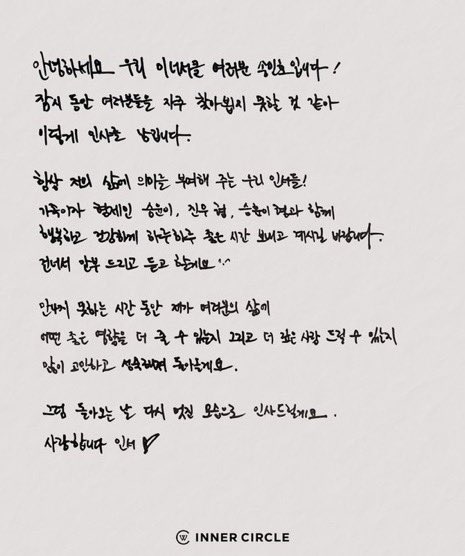 안녕하세요 우리 이너서클 여러분 송민호입니다!
잠시 동안 여러분들을 자주 찾아뵙지 못할 것 같아
이렇게 인사로 남깁니다.
항상 저의 삶에 의미를 부여해 주는 우리 인서들!
가족이자 형제인 승윤이, 진우 형, 승훈이 형과 함께
행복하고 건강하게 하루하루 좋은 시간 보내고 계시길 바랍니다.
건너서 안부 드리고 듣고 할게요
만나지 못하는 시간 동안 제가 여러분의 삶에
어떤 좋은 영향을 더 줄 수 있는지 그리고 더 깊은 사랑 드릴 수 있는지
많이 고민하고 성숙해져 돌아올게요.
그럼 돌아오는 날 다시 멋진 모습으로 인사드릴게요.
사랑합니다 인서
INNER CIRCLE